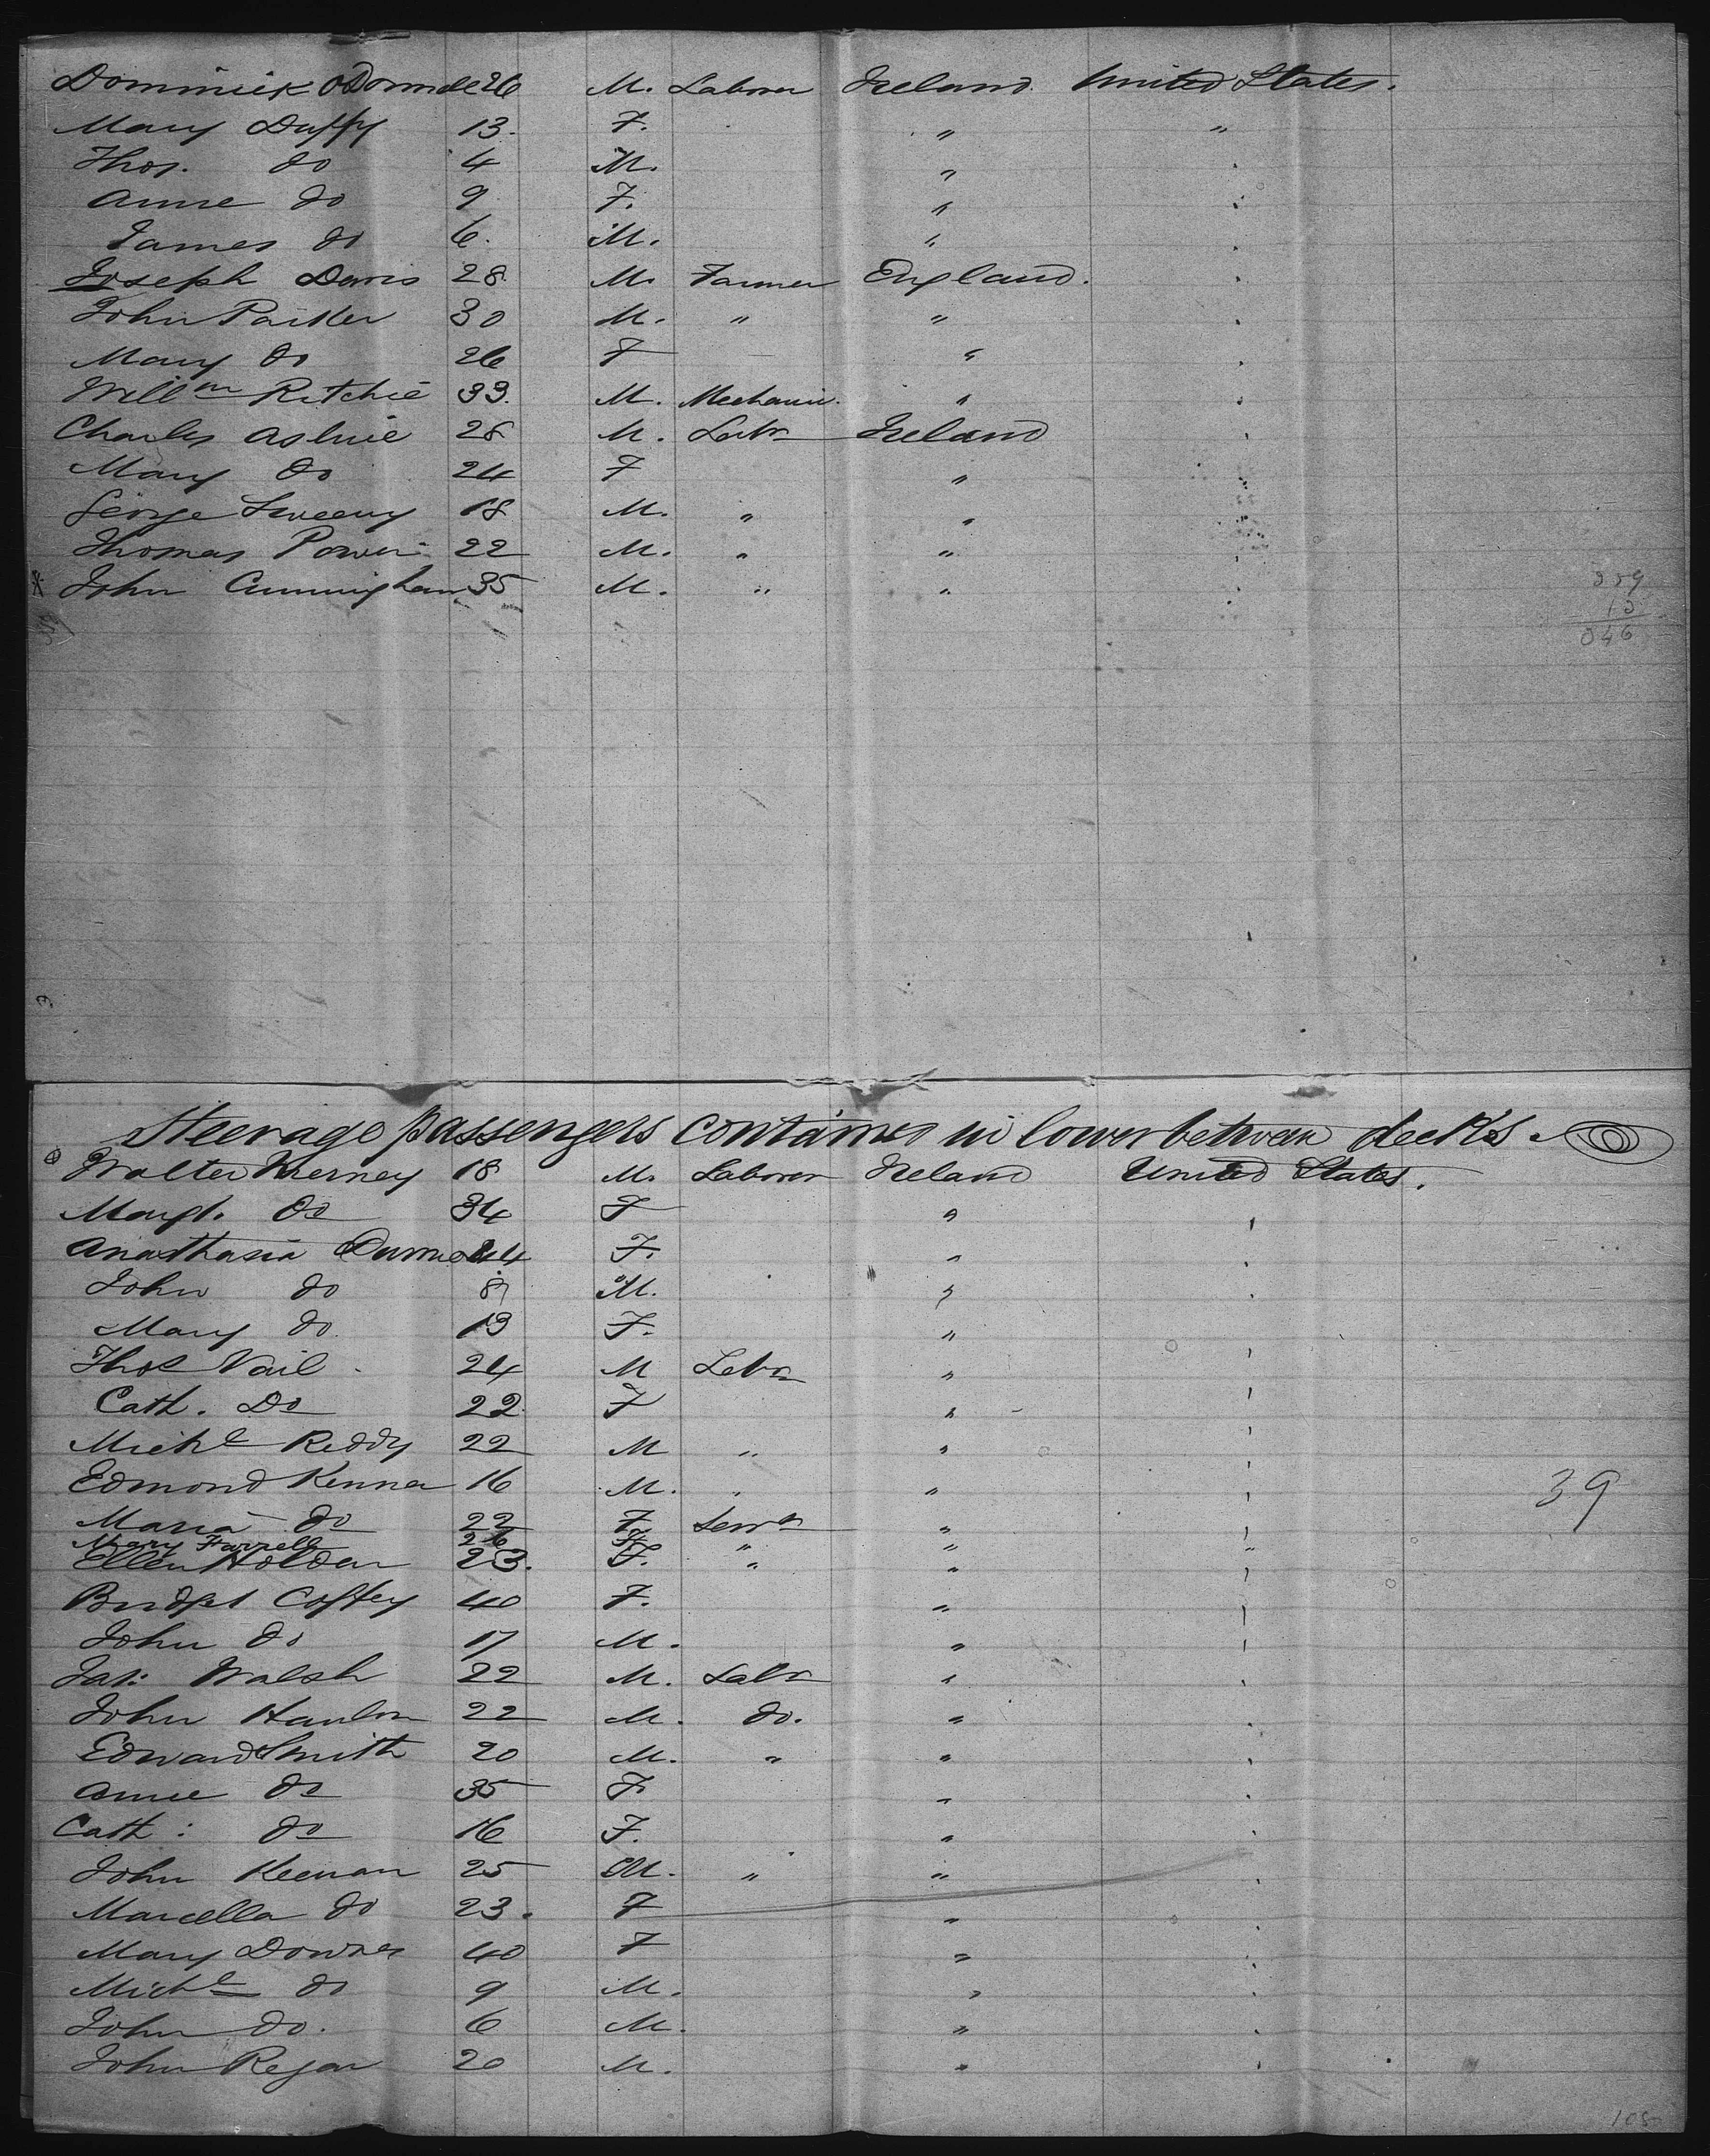 Dominick O Donnell 26 M. Laborer Ireland. United States.
Mary Duffy 13. F. " "
Thos. do 4 M. "
Anne do 9 F. "
James do 6. M. "
Joseph Davis 28. M. Farmer England.
John Parker 30 M. " "
Mary do 26 F "
Willm Ritchie 33. M. Mechanic. "
Charles 28 M. Labr Ireland
Mary do 24 F "
George Sweeny 18 M. " "
Thomas Power 22 M. " "
John Cunningham 35 M. " "
Steerage passengers contained in lower between decks.
Walter Kierney 18 M. Laborer Ireland United States.
Margt. Do 34 F "
Anasthasia 44 F. "
John do 8 M. "
Mary do. 13 F. "
Thos Vail 24 M Labr "
Cath. Do 22 F "
Michl Reddy 22 M " "
Edmond Kenna 16 M. " "
Maria do 22 F Servt "
Mary Farrell 26 F " " "
Ellen Holden 23. F. " "
Bridget Coffey 40 F. "
John do 17 M. "
Jas: Walsh 22 M. Labr "
John Hanlon 22 M. do. "
Edward Smith 20 M. " "
Anne do 35 F "
Cath: do 16 F. "
John Keenan 25 M. " "
Marcella do 23. F "
Mary Downes 40 F "
Michl do 9 M. "
John do. 6 M. "
John Regan 20 M. "
39